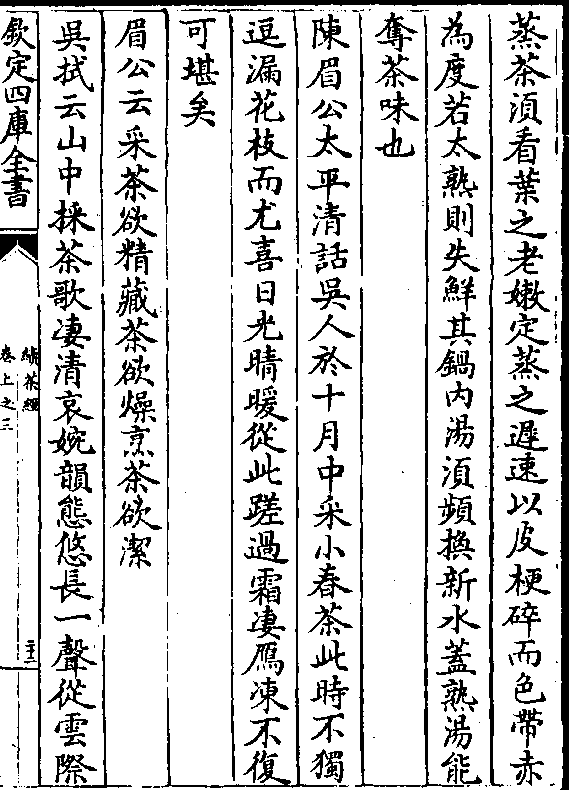 蒸茶湏看葉之老嫩定蒸之遲速以皮梗碎而色帶赤
為度若太熟則失鮮其鍋内湯湏頻換新水蓋熟湯能
奪茶味也
陳眉公太平清話吳人於十月中采小春茶此時不獨
逗漏花枝而尤喜日光晴暖從此蹉過霜凄鴈凍不復
可堪矣
眉公云采茶欲精藏茶欲燥烹茶欲潔
吳拭云山中採茶歌凄清哀婉韻態悠長一聲從雲際
欽定四庫全書
續茶經
卷上之三